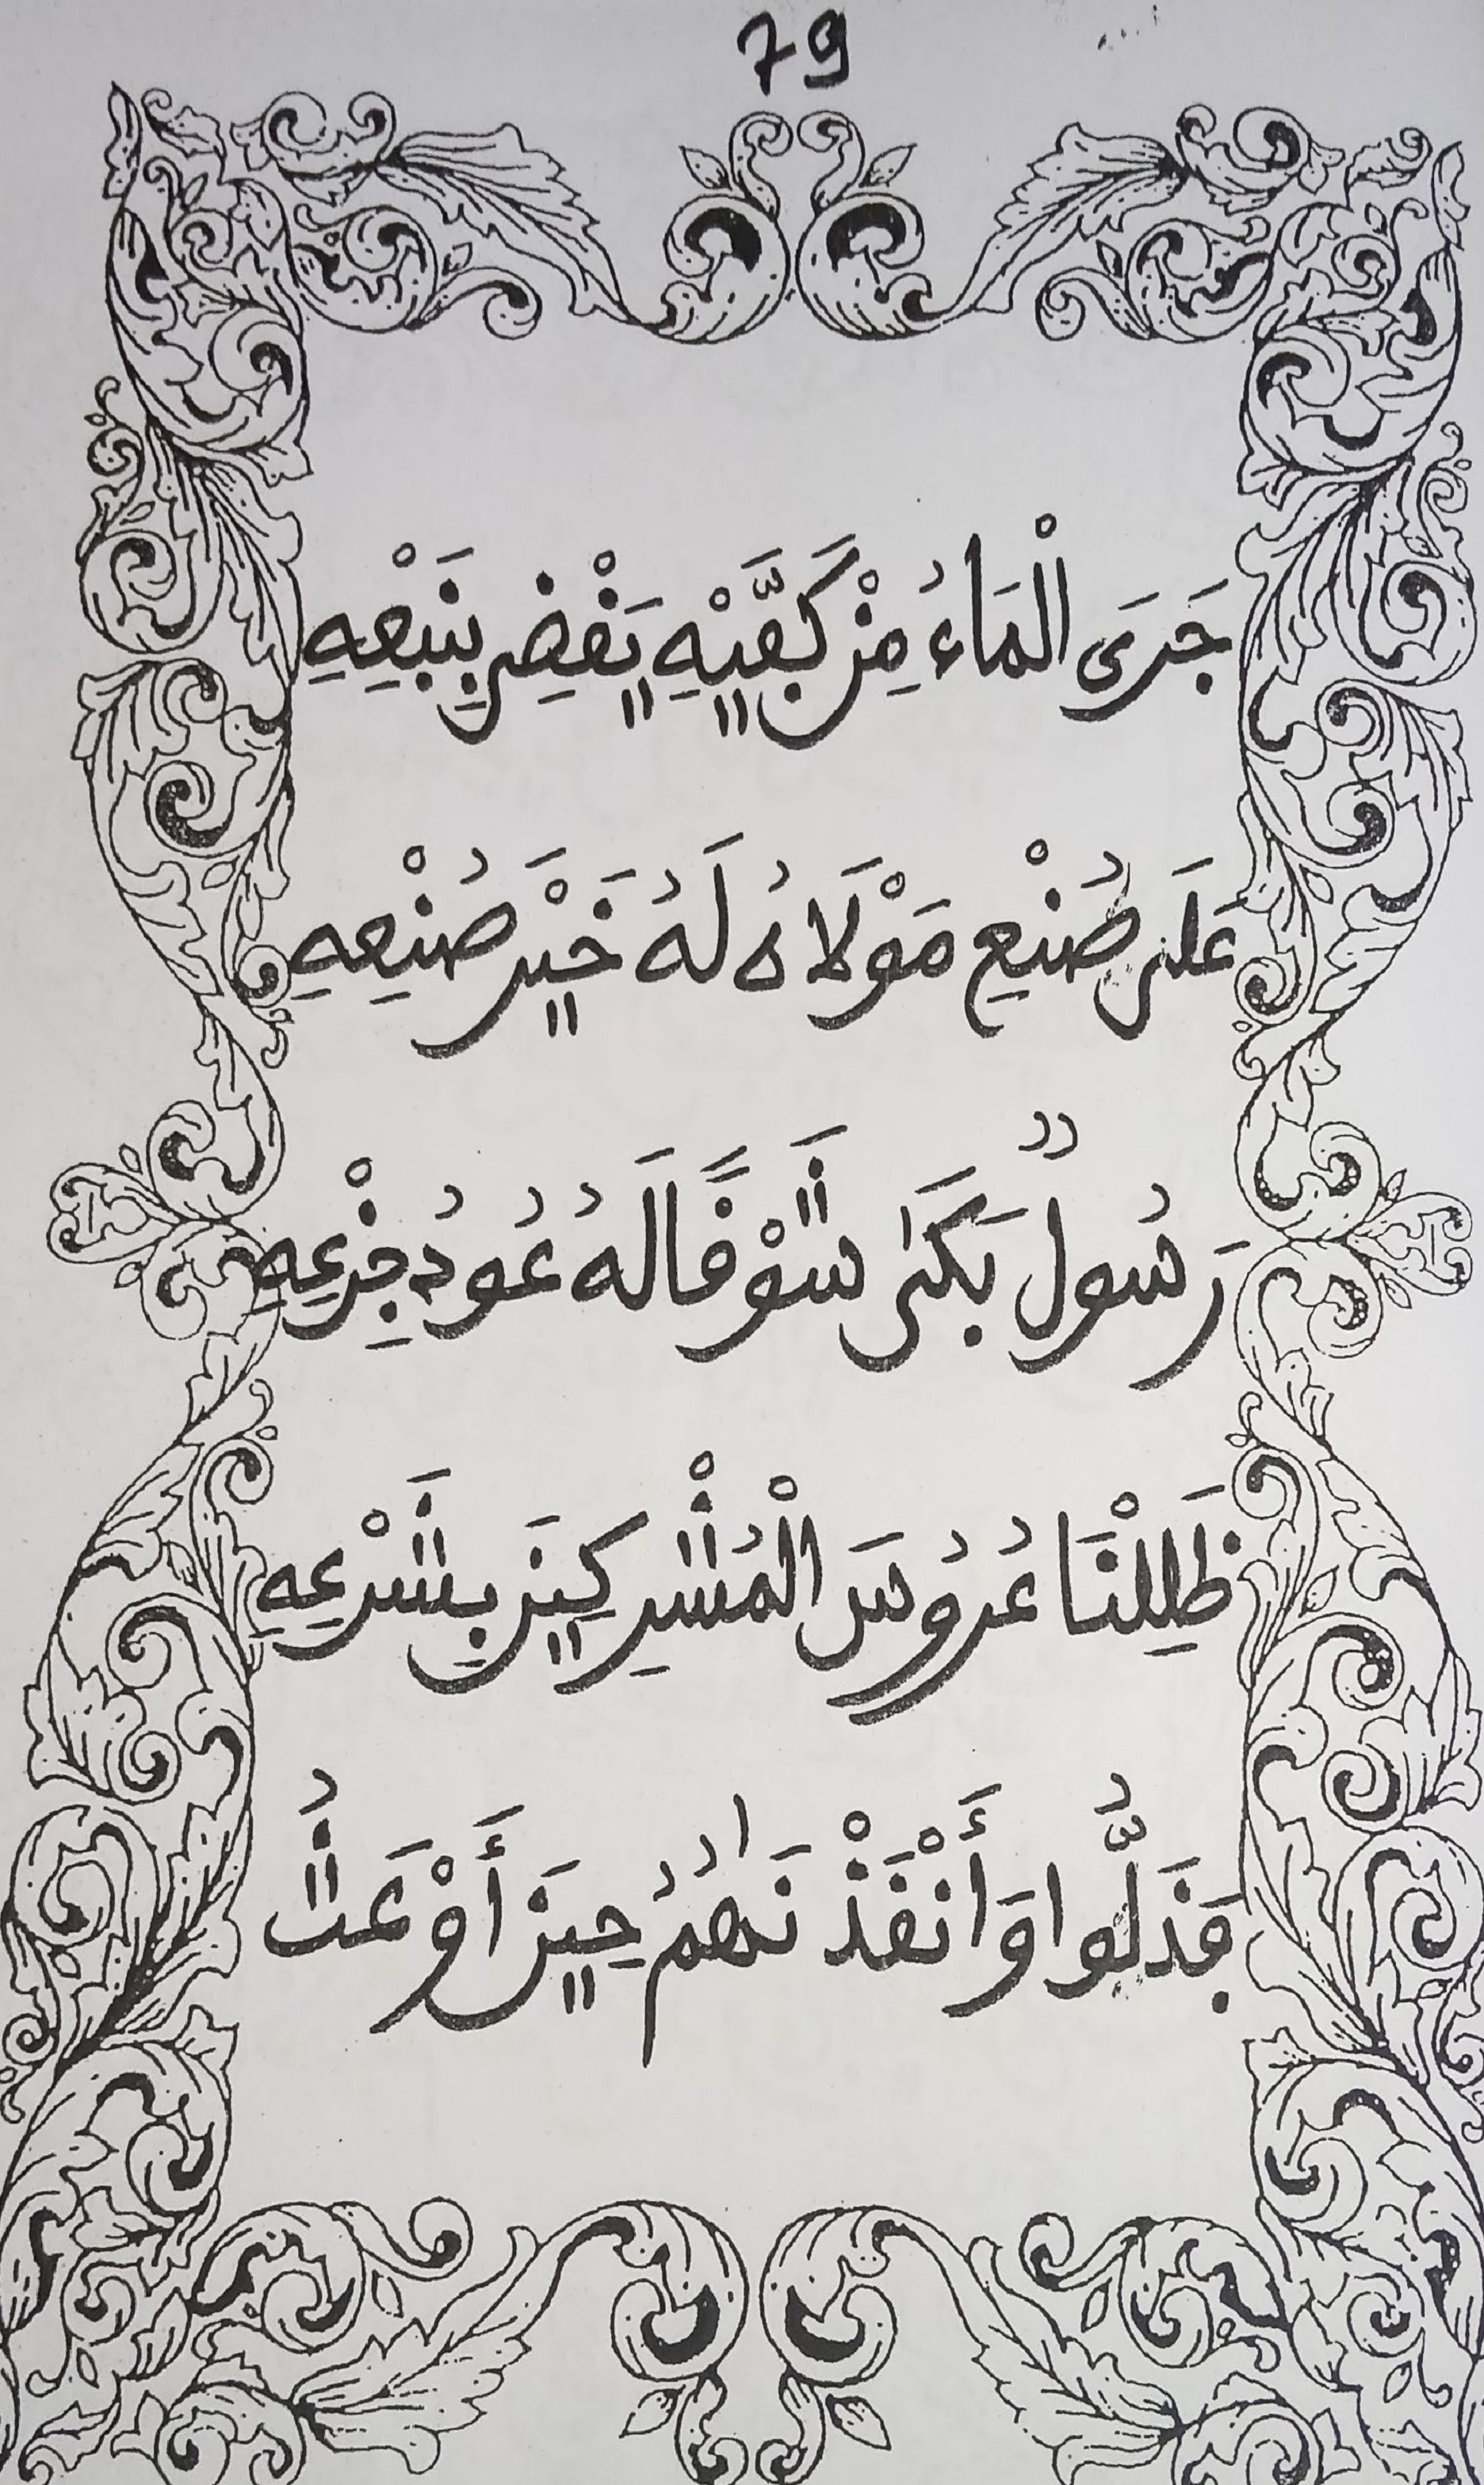 79
جَرَى الْمَاءُ مِنْ كَفَّيْهِ يَقْضِ بِنَبْعِهِ
عَلَى صُنْعِ مَوْلَاهُ لَهُ خَيْرَ صُنْعِهِ
رَسُولٌ بَكَى شَوْقًا لَهُ عُودُ جِذْعِهِ
ظَلِلْنَا عُرُوسَ الْمُشْرِكِينَ بِشَرْعِهِ
فَذَلُّوا وَأَنْفَذْنَاهُمُ حِينَ أَوْ عَثُ